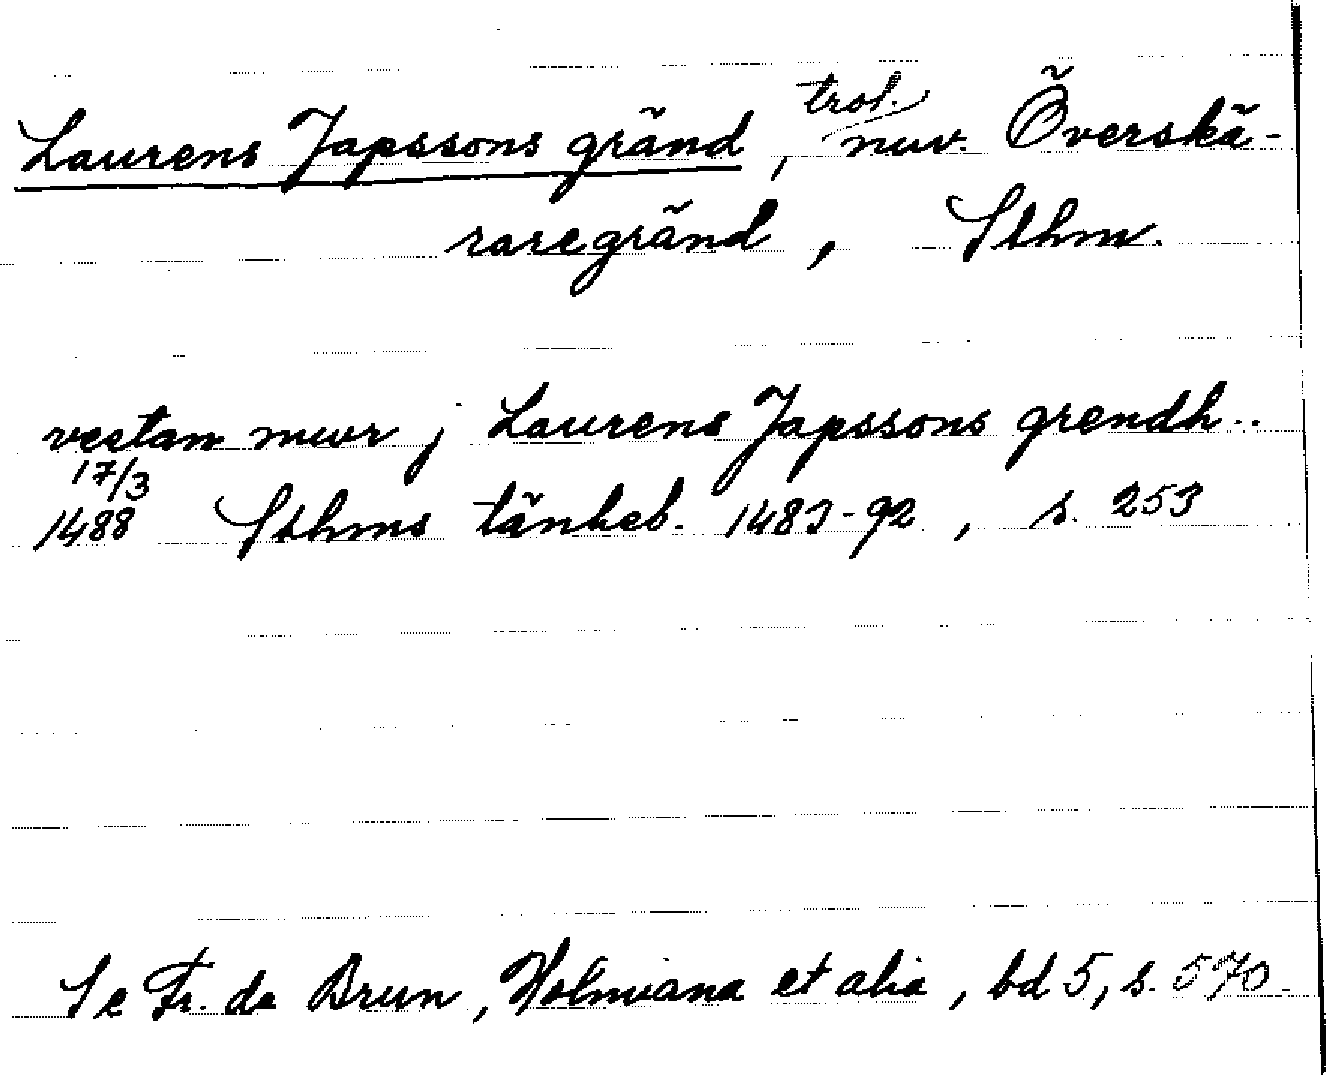 Laurens Japssons gränd, trol. nuv. Överskä-
raregränd, Sthm.
vestan mwr i Laurens Japssons grendh..
17/3
1488 Sthms tänkeb. 1483-92, s. 253
Se Fr. de Brun, Holmiana et alia, bd 5, s. 570.